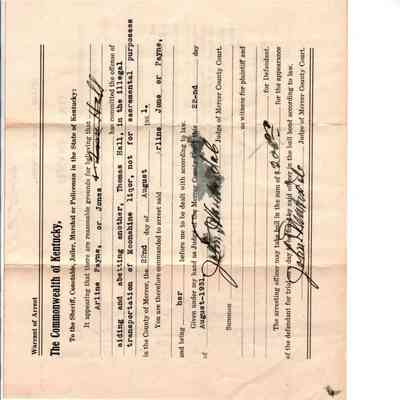 Warrant of Arrest
The Commonwealth of Kentucky,
To the Sheriff, Constable, Jailer, Marshal or Policeman in the State of Kentucky:
It appearing that there are reasonable grounds for believing that
Arline Payne, or Jones Hall
has committed the offense of
aiding and abetting another, Thomas Hall, in the illegal
transportation of Moonshine liqor, not for sacremental purposess
in the County of Mercer, the 22nd day of August 1.
You are therefore commanded to arrest said rline Jone or Payne,
and bring her before me to be dealt with according to law.
Given under my hand as Judge of the Mercer County 22-nd day
August-1931.
of Judge of Mercer County Court.
Summon
as witness for plaintiff and
for Defendant.
The arresting officer may take bail in the sum of $ for the appearance
of the defendant for trial day of by said officer in the bail bond according to law.
Judge of Mercer County Court.